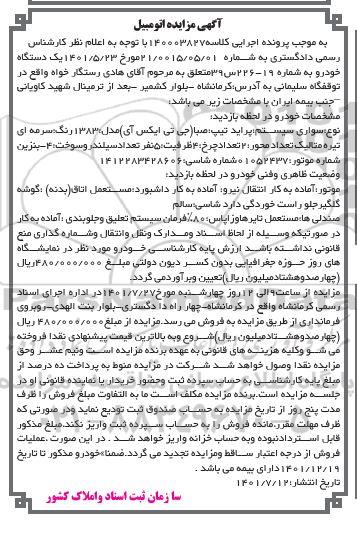 آگهی مزایده اتومبیل
به موجب پرونده اجرایی کلاسه۱۴۰۰۰۳۸۲۷با توجه به اعلام نظر کارشناس
رسمی دادگستری به شماره ۲۱/۰۰۱۵/۰۵/۰۱مورخ ۱۴۰۱/۵/۲۳یک دستگاه
خودرو به شماره ۱۹-۲۲۶س۳۹متعلق به مرحوم آقای هادی رستگار خواه واقع در
توقفگاه سلیمانی به آدرس:کرمانشاه -بلوار کشمیر -بعد از ترمینال شهید کاویانی
-جنب بیمه ایران با مشخصات زیر می باشد:
مشخصات خودرو در لحظه بازدید:
نوع:سواری سیستم:پراید تیپ:صبا(جی تی ایکس آی)مدل:۱۳۸۳رنگ:سرمه ای
تیره متالیک تعداد محور:۲تعدادچرخ:۴ظرفیت:۵نفر تعدادسیلندروسوخت:۴-بنزین
شماره موتور:۰۱۰۵۲۴۳۷ شماره شاسی:۱۴۱۲۲۸۳۴۲۸۶۰۶
وضعیت ظاهری وفنی خودرو در لحظه بازدید:
موتور:آماده به کار انتقال نیرو: آماده به کار داشبورد:مستعمل اتاق(بدنه) :گوشه
گلگیرجلو راست خوردگی دارد شاسی:سالم
صندلی ها:مستعمل تایرهاوزاپاس:۸۰٪فرمان سیستم تعلیق وجلوبندی :آماده به کار
در صورتیکه وسیله از لحاظ اسناد ومدارک ونقل وانتقال وشماره گذاری منع
قانونی نداشته باشد ارزش پایه کارشناسی خودرو مورد نظر در نمایشگاه
های روز حوزه جغرافیایی بدون کسر دیون دولتی مبلغ ۴۸۰/۰۰۰/۰۰۰ریال
(چهارصدوهشتادمیلیون ریال)تعیین وبرآوردمی گردد.
مزایده از ساعت۹الی ۱۲روز چهارشنبه مورخ۱۴۰۱/۷/۲۷در اداره اجرای اسناد
رسمی کرمانشاه واقع در کرمانشاه-چهار راه دا دگستری-بلوار بنت الهدی-روبروی
فرمانداری از طریق مزایده به فروش می رسد.مزایده از مبلغ۴۸۰/۰۰۰/۰۰۰ ریال
(چهارصدوهشتادمیلیون ریال)شروع وبه بالاترین قیمت پیشنهادی نقدا فروخته
می شو وکلیه هزینه های قانونی به عهده برنده مزایده است ونیم عشر وحق
مزایده نقدا وصول خواهد شد شرکت در مزایده منوط به پرداخت ده درصد از
مبلغ پایه کارشناسی به حساب سپرده ثبت وحضور خریدار یا نماینده قانونی او در
جلسه مزایده است.برنده مزایده مکلف است ما به التفاوت مبلغ فروش را ظرف
مدت پنج روز از تاریخ مزایده به حساب صندوق ثبت تودیع نماید ودر صورتی که
ظرف مهلت مقرر،مانده فروش را به حساب سپرده ثبت واریز نکند.مبلغ مذکور
قابل استردادنبوده وبه حساب خزانه واریز خواهد شد . در این صورت ،عملیات
فروش از درجه اعتبار ساقط ومزایده تجدید می گردد.ضمنا»خودرو مذکور تا تاریخ
۱۴۰۱/۱۲/۱۹دارای بیمه می باشد .
تاریخ انتشار:۱۴۰۱/۷/۱۲
سا زمان ثبت اسناد واملاک کشور